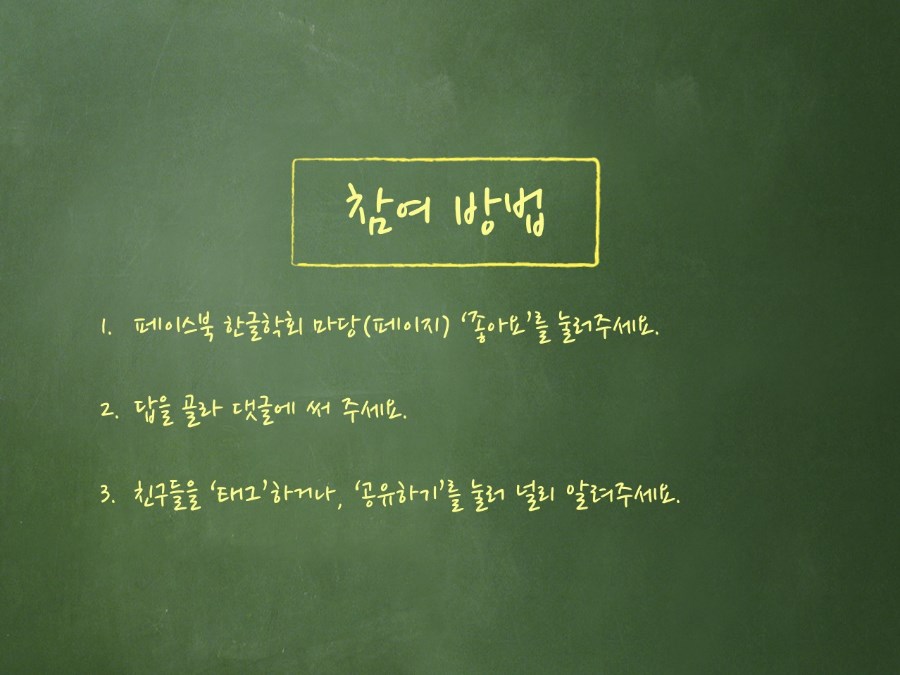 참여 방법
1. 페이스북 한글학회 마당(페이지) ‘좋아요’를 눌러주세요.
2. 답을 골라 댓글에 써 주세요.
3. 친구들을 ‘태그’하거나, ‘공유하기’를 눌러 널리 알려주세요.